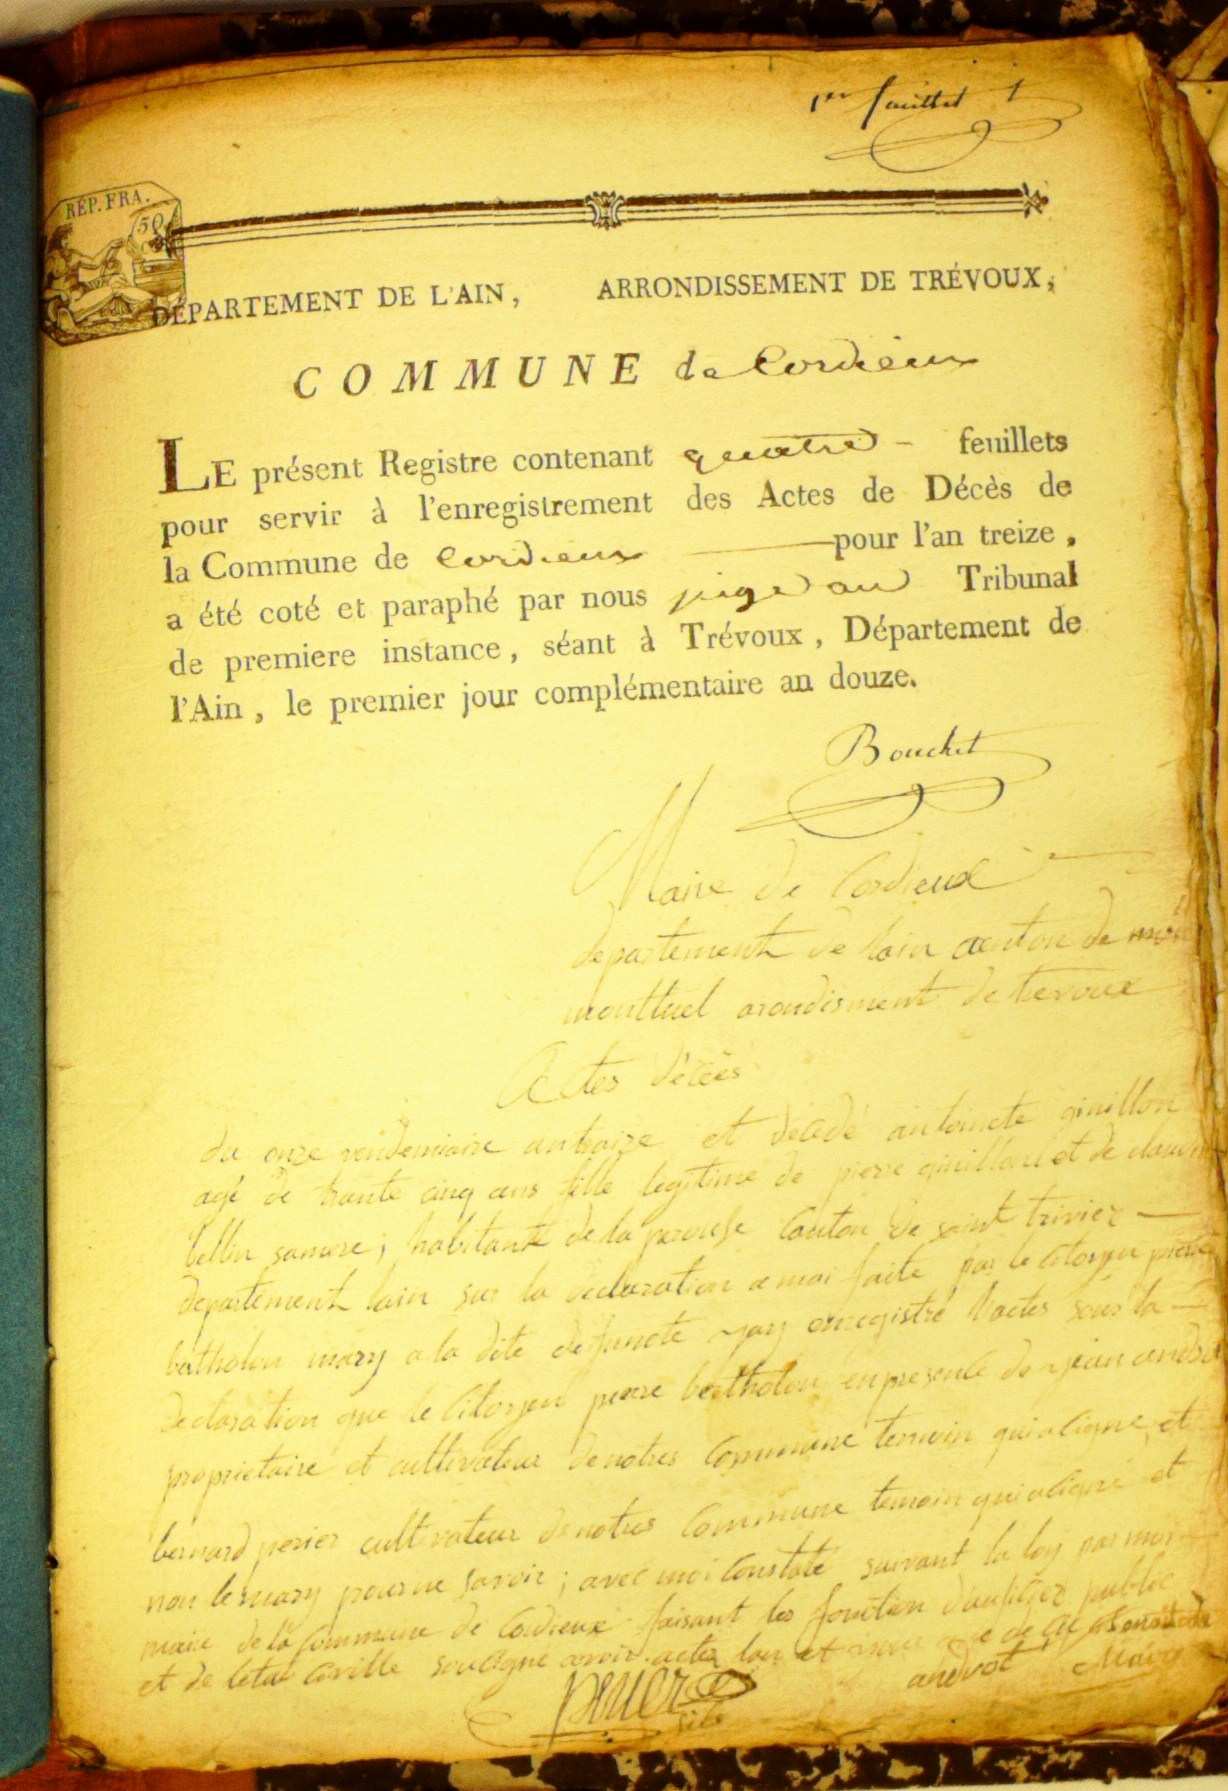 1er feuillet 1
REP. FRA.
50
DÉPARTEMENT DE L'AIN, ARRONDISSEMENT DE TRÉVOUX,
COMMUNE de Cordieux
LE présent Registre contenant quatre feuillets
pour servir à l'enregistrement des Actes de Décès de
la Commune de Cordieux pour l'an treize,
a été coté et paraphé par nous juge au Tribunal
de premiere instance, séant à Trévoux, Département de
l'Ain, le premier jour complémentaire an douze.
Bouchet
Maire de Cordieux
departement de lain canton de
montluel arondisment de trevoux
Actes décées
du onze vendemiaire antraize et décédé antoinete guillon
agé de trante cinq ans fille legitime de pierre guillon et de
bellin samere; habitante de la parousse Canton de saint trivier
departement lain sur la declaration a moi faite par le Citoyen pierre
batholon mary a la dite defuncte jay enregistré lactes sous la
declaration que le Citoyen pierre bertholon en presence de jean
propriétaire et cultivateur denotres Commune temoin quiasigné et
bernard perier cultivateur denotres Commune temoin quiasigné et
non lemary pourne savoir; avec moi Constaté suivant la loy par moi
maire de la Commune de Cordieux faisant les fonction d'auficier public
et de letat Civille sousigné avoir actes lan et jour que de
perier
andvot Maire